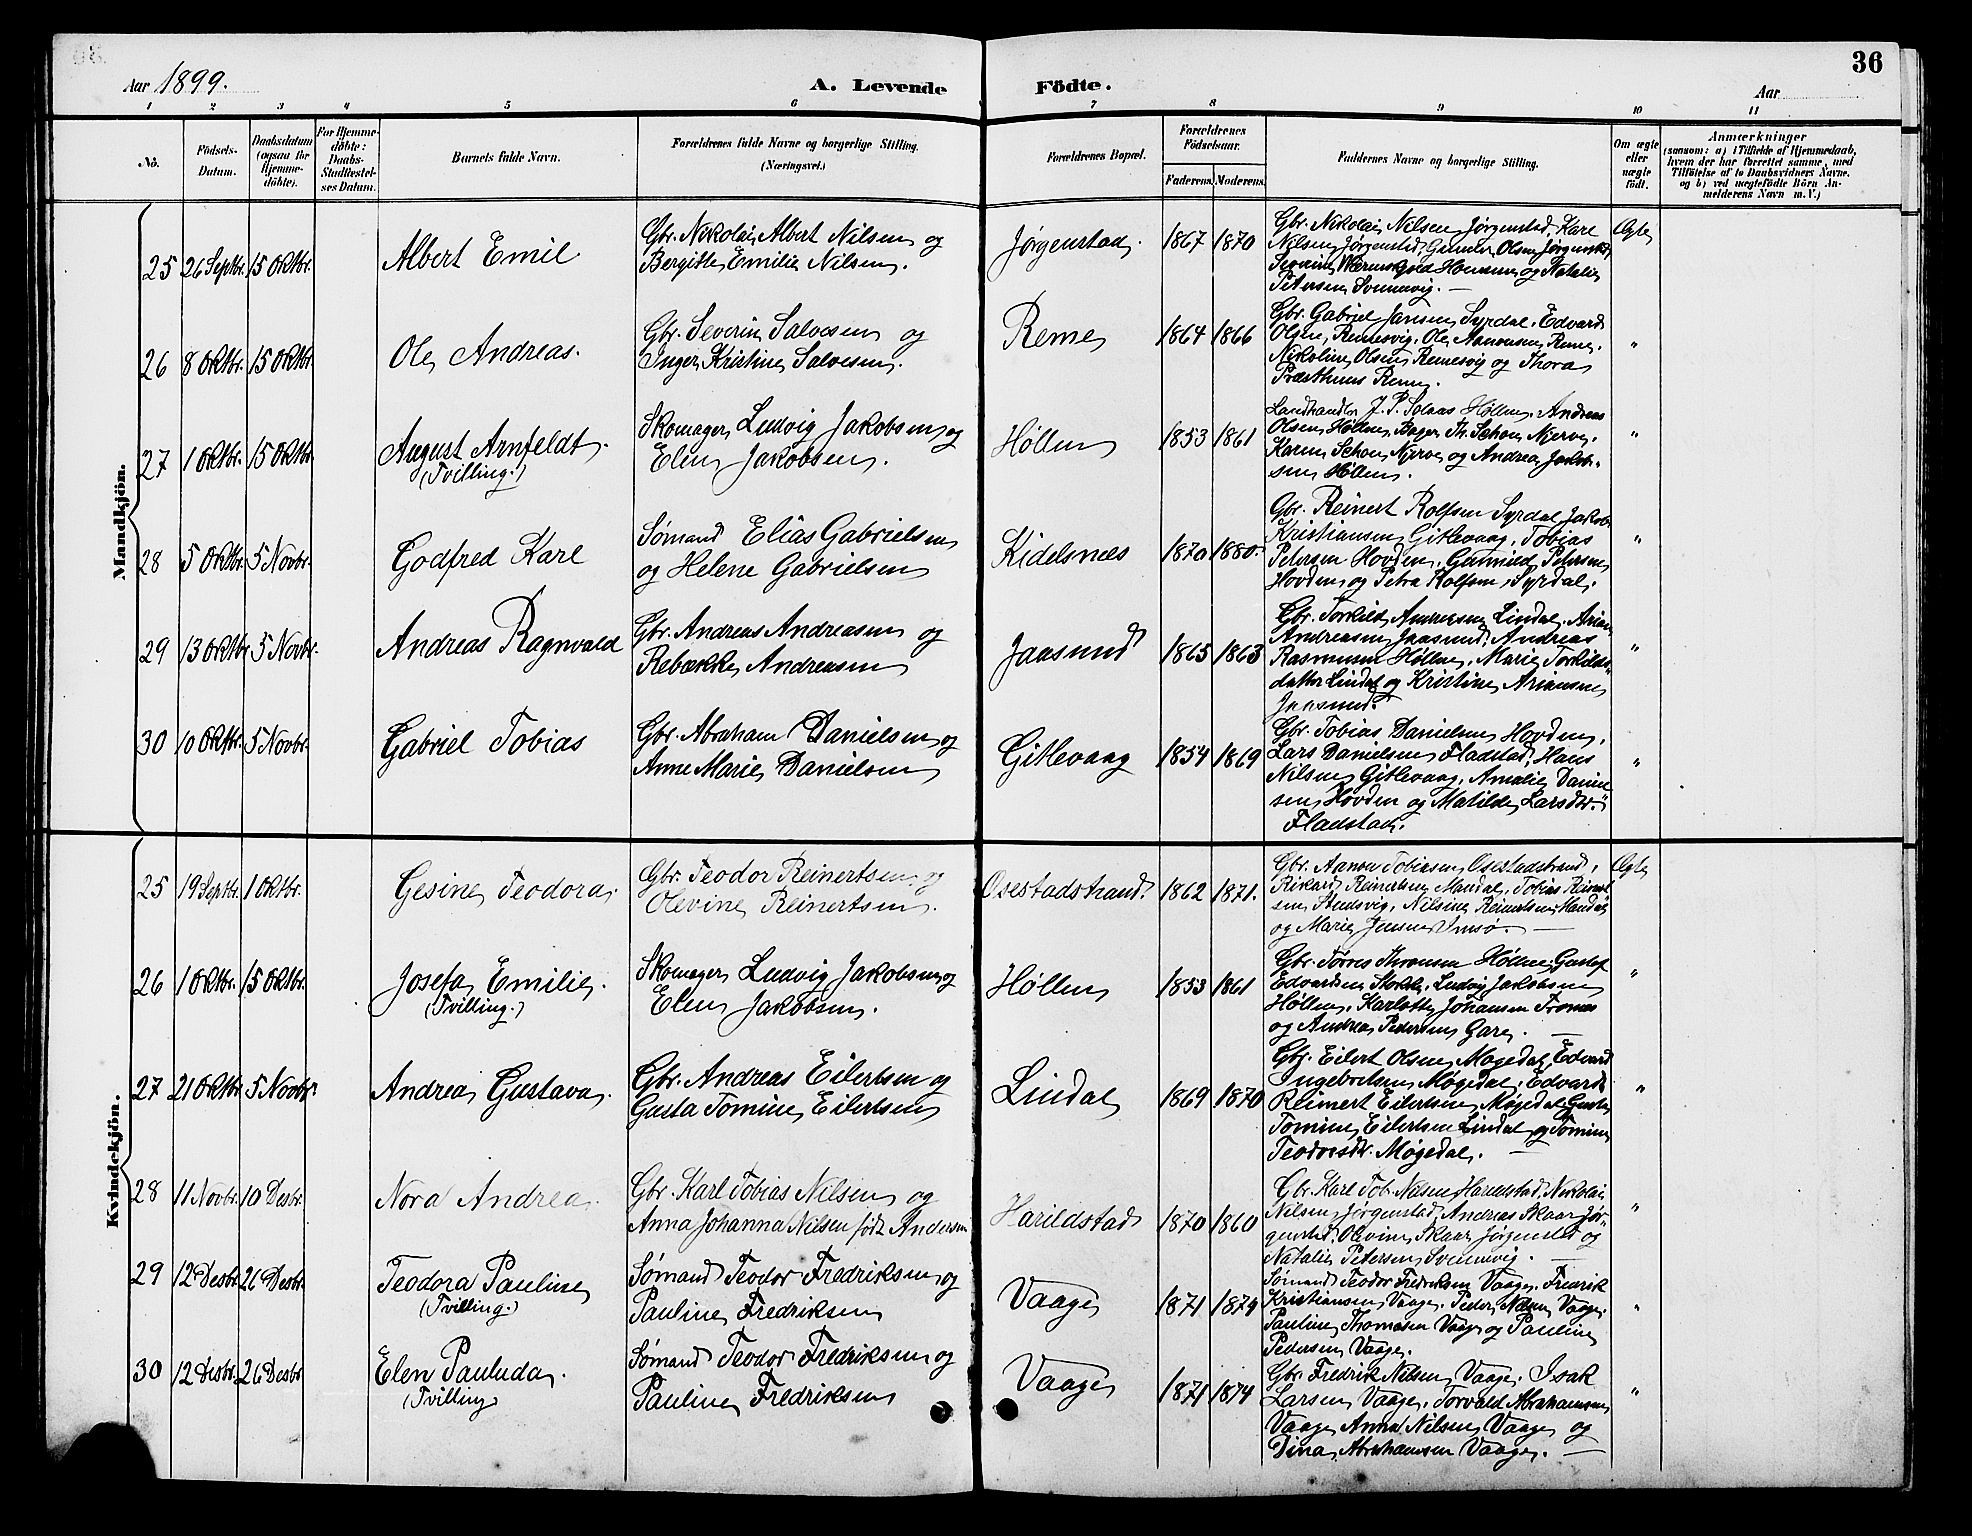 36
Aar 1899.
A. Levende Födte.
Aar
1 2 3 4 5 6 7 8 9 10 11
No.
Födsels-
Datum.
Daabsdatum
(ogsaa for
Hjemme-
döbte).
For Hjemme-
döbte:
Daabs-
Stadfæstel-
ses Datum.
Barnets fulde Navn.
Forældrenes fulde Navne og borgerlige Stilling.
(Næringsvei.)
Forældrenes Bopæl.
Forældrenes
Födselsaar.
Faderens. Moderens.
Faddernes Navne og borgerlige Stilling.
Om ægte
eller
uægte
födt.
Anmærkninger
(saasom: a) i Tilfælde af Hjemmedaab,
hvem der har forrettet samme, med
Tilföielse af to Daabsvidners Navne.
og b) ved uægtefödte Börn An-
melderens Navn m. V.)
Mandkjön.
25 26 Septbr. 15 Oktbr.
Albert Emil
Gbr. Nikolai Albert Nilsen og
Bergitte Emilie Nilsen.
Jørgenstad.
1867 1870
Gbr. Nikolai Nilsen Jørgenstad, Karl
Nilsen Jørgenstad, Gunder Olsen Jørgenstad,
Severine og Natalie
Petersen Svennevig. —
Ægte
26 8 Oktbr. 15 Oktbr.
Ole Andreas.
Gbr. Severin Salvesen og
Inger Kristine Salvesen.
Reme
1864 1866
Gbr. Gabriel Jansen Syrdal, Edvard
Olsen, Remesvig, Ole Aanensen Reme,
Nikoline Olsen Remesvig og Thora
Præsthuus Reme.
"
27 1 Oktbr. 15 Oktbr.
August Arnfeldt.
(Tvilling.)
Skomager Ludvig Jakobsen og
Elen Jakobsen.
Høllen
1853 1861
Landhandler J. P. Høllen, Andreas
Olsen, Høllen, Bager Th. Schou Njerve,
Karen Schou Njerve og Andrea Jakob-
sen Høllen.
"
28 5 Oktbr. 5 Novbr.
Godfred Karl
Sømand Elias Gabrielsen
og Helene Gabrielsen
Kidelsnæs
1870 1880.
Gbr. Reinert Rolfsen Syrdal, Jakob
Kristiansen Gitlevaag, Tobias
Petersen Hovden, Gunnild Petersen
Hovden og Petra Rolfsen, Syrdal.
"
29 13 Oktbr 5 Novbr.
Andreas Ragnvald
Gbr. Andreas Andreasen og
Rebække Andreasen
Jaasund
1865 1863
Gbr. Torkild Andreasen Lindal, Arian
Andreasen Jaasund, Andreas
Rasmusen Høllen, Marie Torkilds-
datter Lindal og Kristine Ariansen
Jaasund.
"
30 10 Oktbr. 5 Novbr.
Gabriel Tobias
Gbr. Abraham Danielsen og
Anne Marie Danielsen
Gitlevaag
1854 1869
Gbr. Tobias Danielsen Hovden,
Lars Danielsen Fladstad, Hans
Nilsen Gitlevaag, Amalie Daniel
sen, Hovden og Matilde Larsdtr.
Fladstad.
"
Kvindekjön.
25 19 Septbr. 1 Oktbr.
Gesine Teodora.
Gbr. Teodor Reinertsen og
Olevine Reinertsen.
Osestadstrand.
1862 1871.
Gbr. Aanon Tobiasen, Osestadstrand,
Rikard Reinertsen Mandal, Tobias Reinert
sen Stusvig, Nilsine Reinertsen Mandal
og Marie Jensen Imsø. —
Ægte
26 1 Oktbr. 15 Oktbr.
Josefa Emilie.
(Tvilling.)
Skomager Ludvig Jakobsen og
Elen Jakobsen.
Høllen
1853 1861
Gbr. Torres Høllen, Gustef
Edvardsen Ludvig Jakobsen
Høllen, Karlotte Johansen Tromøs
og Andrea Pedersen Gare. —
"
27 21 Oktbr 5 Novbr.
Andrea Gustava.
Gbr. Andreas Eilertsen og
Gusta Tomine Eilertsen
Lindal
1869 1870
Gbr. Eilert Olsen Møgedal, Edvard
Ingebretsen Møgedal, Edvard
Reimert Eilertsen, Møgedal, Gusta
Tomine Eilertsen Lindal og Tomine
Teodorsdtr. Møgedal. —
"
28 11 Novbr. 10 Desbr.
Nora Andrea
Gbr. Karl Tobias Nilsen og
Anna Johanna Nilsen født Andersen
Harildstad
1870 1860
Gbr. Karl Tob. Nilsen Harildstad, Nikolai
Nilsen Jørgenstad, Andreas Skaar, Jør-
genstad, Olevine Skaar, Jørgenstad og
Natalie Petersen Svennevig. —
"
29 12 Desbr. 26 Desbr.
Teodora Pauline
(Tvilling.)
Sømand Teodor Fredriksen og
Pauline Fredriksen
Vaage
1871 1874
Sømand Teodor Fredriksen Vaage, Fredrik
Kristiansen, Vaage, Peder Nilsen Vaage,
Pauline Thomasen Vaage og Pauline
Pedersen Vaage.
"
30 12 Desbr. 26 Desbr
Elen Pauluda.
(Tvilling)
Sømand Teodor Fredriksen og
Pauline Fredriksen
Vaage
1871 1874
Gbr. Fredrik Nilsen Vaage, Isak
Larsen Vaage, Torvald Abrahamsen,
Vaage, Anna Nilsen Vaage og
Tina Abrahamsen Vaage. —
"